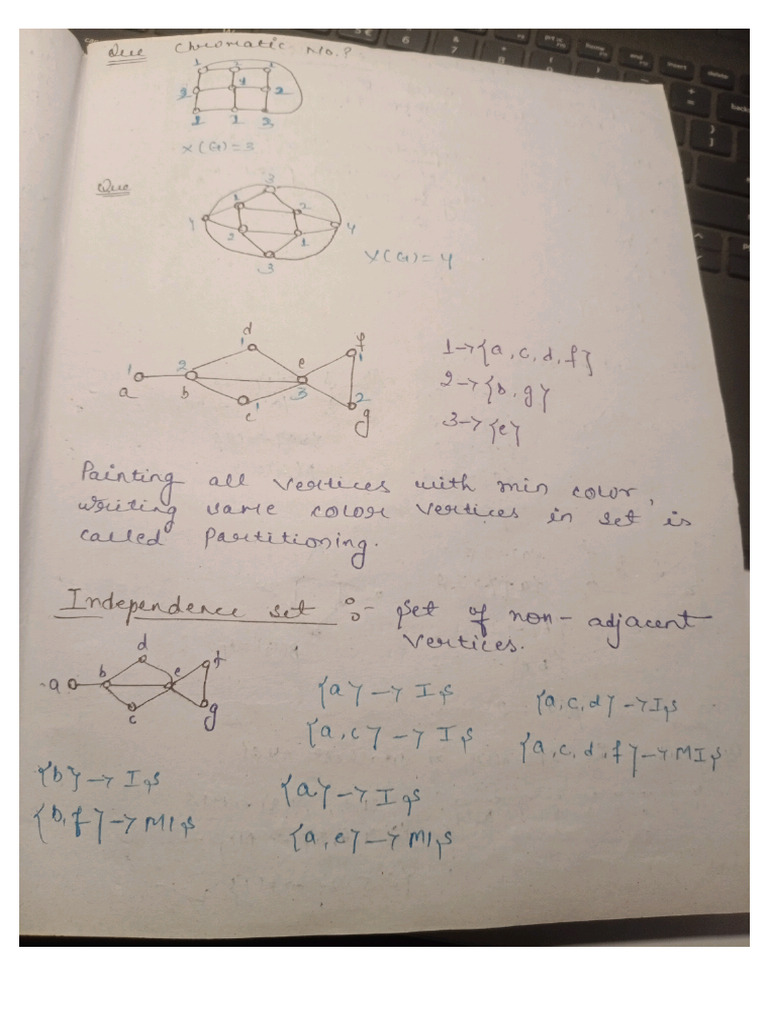 Que Chromatic No.?
1 2 1
2 1 2
1 2 3
X(G)=3
Que
3
1 2
4 4
2 1
3
X(G)=4
d f
1 1
1 2 e
a b 3 2
c 1 g
1→{a, c, d, f}
2→{b, g}
3→{e}
Painting all vertices with min color,
writing same color vertices in set is
called Partitioning.
Independence set :- set of non-adjacent
vertices.
d
a b e f
c g
{a} → I,S
{a, c, d} → I,S
{a, c} → I,S
{a, c, d, f} → MI,S
{b} → I,S
{a} → I,S
{b, f} → MI,S
{a, e} → MI,S